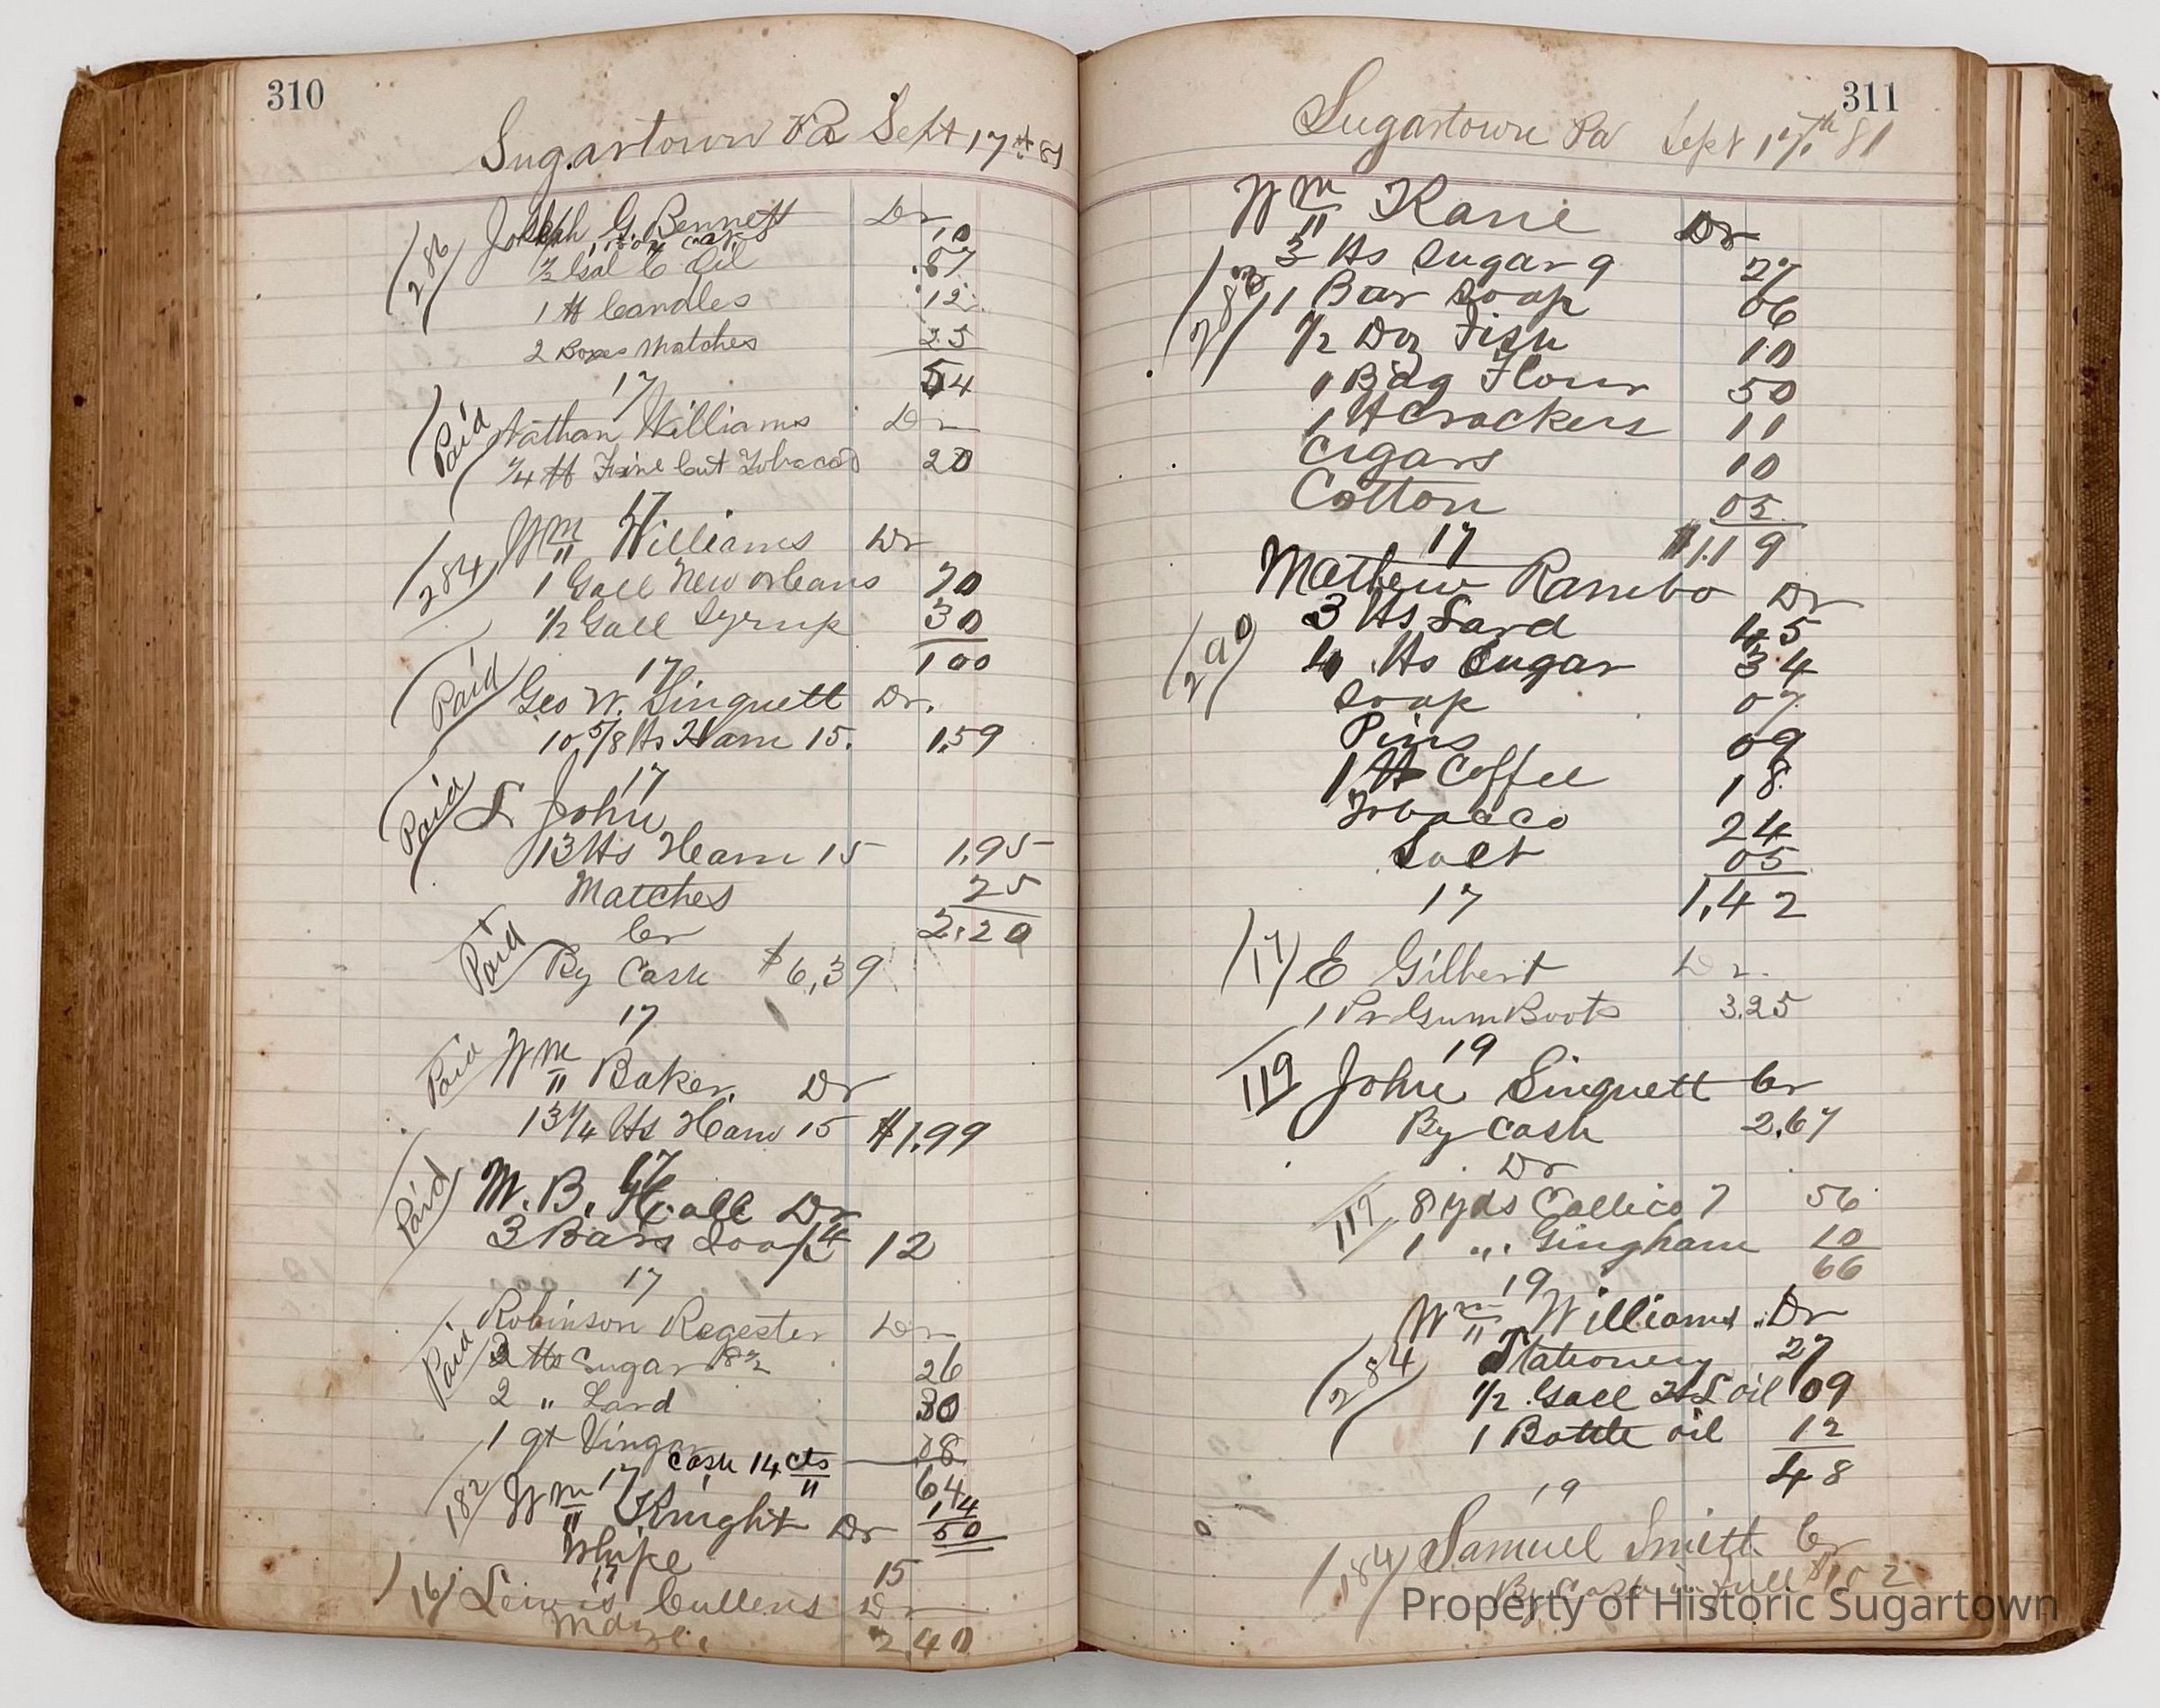 310
Sugartown Pa Sept 17th 81
286 Joseph G. Bennett Dr
10
1/2 Gal C Oil .07
1 lb Candles 12
2 Boxes Matches 25
54
17
Paid Nathan Williams Dr
1/4 lb Fine Cut Tobacco 20
17
284 Wm Williams Dr
1 Gall New Orleans 70
1/2 Gall Syrup 30
100
17
Paid Geo W. Singuett Dr.
10 5/8 lbs Ham 15. 1.59
17
Paid S John
13 lbs Ham 15 1.95
Matches 25
2.20
Cr
Paid By Cash $6,39
17
Paid Wm Baker. Dr
13 1/4 lbs Ham 15 $1.99
17
Paid M. B. Hall Dr
3 Bars Soap 4 12
17
Paid Robinson Regester Dr
3 lbs Sugar 8 1/2 26
2 " Lard 30
1 qt Vingar 08
Cash 14 cts 64
17 14
50
182 Wm Knight Dr
Whipe 15
17
16 Lewis Cullens Dr
2,40
311
Sugartown Pa Sept 17th 81
Wm Kane Dr
3 lbs Sugar 9 27
1 Bar Soap 06
1/2 Doz Fish 10
1 Bag Flour 50
1 lb Crackers 11
Cigars 10
Cotton 05
17 $1.19
Mathew Rambo Dr
290 3 lbs Lard 45
4 lbs Sugar 34
Soap 07
Pins 09
1 lb Coffee 18
Tobacco 24
Salt 05
17 1,42
17 E Gilbert Dr.
1 Pr Gum Boots 3.25
19
119 John Singuett Cr
By Cash 2.67
Dr
119 8 yds Callico 7 56
1 " Gingham 10
66
19
Wm Williams Dr
284 Stationery 27
1/2 Gall H L oil 09
1 Bottle oil 12
48
19
184 Samuel Smith Cr
By Cash in full $1 02
Property of Historic Sugartown